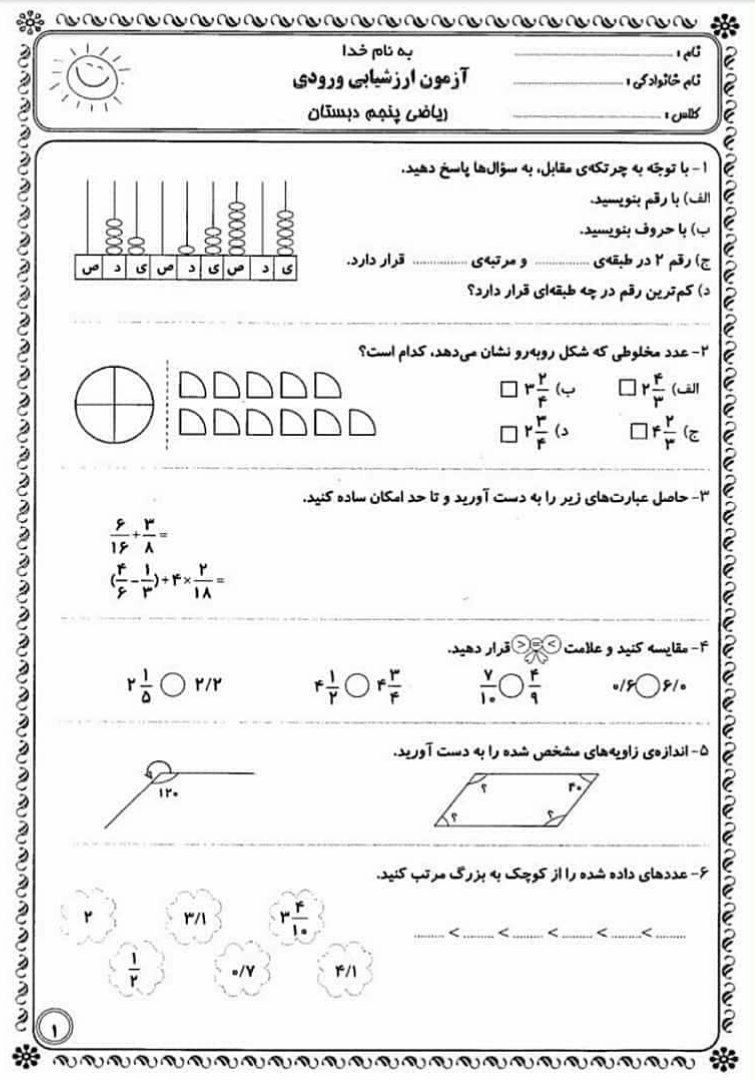 به نام خدا
آزمون ارزشیابی ورودی
ریاضی پنجم دبستان
نام :
نام خانوادگی :
کلاس :
۱- با توجّه به چرتکه‌ی مقابل، به سؤال‌ها پاسخ دهید.
الف) با رقم بنویسید.
ب) با حروف بنویسید.
ج) رقم ۲ در طبقه‌ی .............. و مرتبه‌ی .............. قرار دارد.
د) کم‌ترین رقم در چه طبقه‌ای قرار دارد؟
ص د ی ص د ی ص د ی
۲- عدد مخلوطی که شکل روبه‌رو نشان می‌دهد، کدام است؟
الف) ۲ ۴/۳ ب) ۳ ۲/۴
ج) ۴ ۲/۳ د) ۲ ۳/۴
۳- حاصل عبارت‌های زیر را به دست آورید و تا حد امکان ساده کنید.
۶/۱۶ ÷ ۳/۸ =
(۴/۶ - ۱/۳) ÷ ۴ × ۲/۱۸ =
۴- مقایسه کنید و علامت < = > قرار دهید.
۰/۶ ○ ۶/۰
۷/۱۰ ○ ۴/۹
۴ ۱/۲ ○ ۴ ۳/۴
۲ ۱/۵ ○ ۲/۲
۵- اندازه‌ی زاویه‌های مشخص شده را به دست آورید.
؟ ۴۰
؟ ؟
؟
۱۲۰
۶- عددهای داده شده را از کوچک به بزرگ مرتب کنید.
...... < ...... < ...... < ...... < ...... < ......
۳ ۴/۱۰ ۳/۱ ۲
۴/۱ ۰/۷ ۱/۲
۱